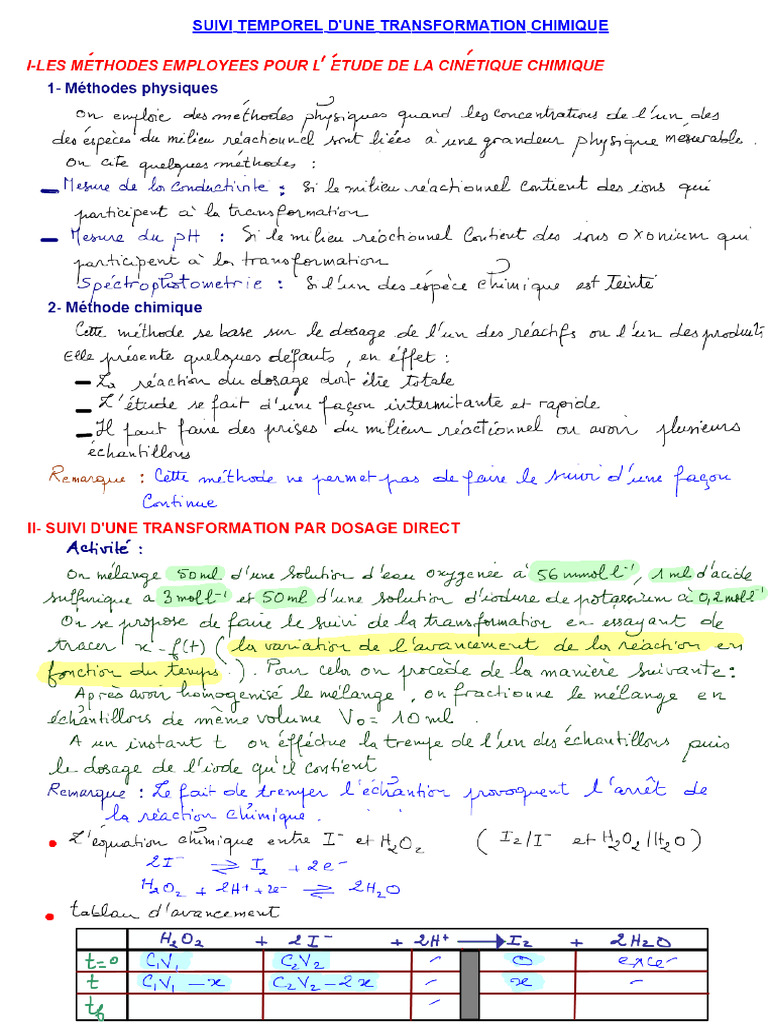 SUIVI TEMPOREL D'UNE TRANSFORMATION CHIMIQUE
I-LES MÉTHODES EMPLOYEES POUR L' ÉTUDE DE LA CINÉTIQUE CHIMIQUE
1- Méthodes physiques
On emploie des méthodes physiques quand les concentrations de l'un des
des espèces du milieu réactionnel sont liées à une grandeur physique mesurable.
On cite quelques méthodes :
– Mesure de la conductivite : Si le milieu réactionnel contient des ions qui
participent à la transformation
– Mesure du pH : Si le milieu réactionnel contient des ions oxonium qui
participent à la transformation
Spéctrophotometrie : Si l'un des espèce chimique est teinté
2- Méthode chimique
Cette méthode se base sur le dosage de l'un des réactifs ou l'un des produits
Elle présente quelques défauts, en effet :
– La réaction du dosage doit être totale
– L'étude se fait d'une façon intermitante et rapide
– Il faut faire des prises du milieu réactionnel ou avoir plusieurs
échantillons
Remarque : Cette méthode ne permet pas de faire le suivi d'une façon
Continue
II- SUIVI D'UNE TRANSFORMATION PAR DOSAGE DIRECT
Activité :
On mélange 50ml d'une solution d'eau oxygenée à 56 mmol l⁻¹, 1 ml d'acide
sulfurique à 3 mol l⁻¹ et 50 ml d'une solution d'iodure de potassium à 0,2 mol l⁻¹
On se propose de faire le suivi de la transformation en essayant de
tracer x = f(t) ( la variation de l'avancement de la réaction en
fonction du temps . ). Pour cela on procède de la manière suivante :
Après avoir homogenisé le mélange, on fractionne le mélange en
échantillons de même volume V₀ = 10 ml.
A un instant t on éfféctue la trempe de l'un des échantillons puis
le dosage de l'iode qu'il contient
Remarque : Le fait de tremper l'échantion provoquent l'arrêt de
la réaction chimique.
• L'équation chimique entre I⁻ et H₂O₂ ( I₂/I⁻ et H₂O₂/H₂O )
2I⁻ ⇌ I₂ + 2e⁻
H₂O₂ + 2H⁺ + 2e⁻ ⇌ 2H₂O
• tablau d'avancement
H₂O₂ + 2I⁻ + 2H⁺ → I₂ + 2H₂O
t=0 C₁V₁ C₂V₂ – 0 exce –
t C₁V₁ – x C₂V₂ – 2x – x –
tf –